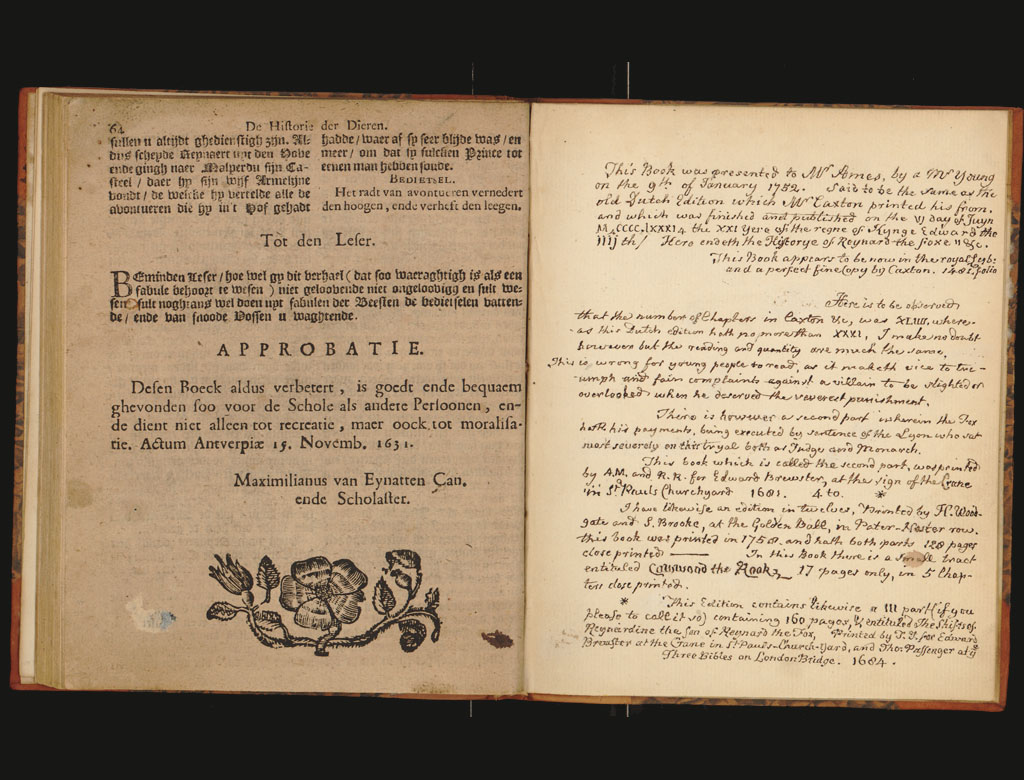 64
De Historie der Dieren.
sullen u altijdt ghedienstigh zijn. Al-
dus scheyde Reynaert upt den Hove
ende gingh naer Malperdu sijn Ca-
steel / daer hy sijn wijf Armelijne
vondt / de welcke hy vertelde alle de
avontueren die hy in't Hof gehadt
hadde / waer af sy seer blijde was / en
meer / om dat sy sulcken Prince tot
eenen man hebben soude.
BEDIETSEL.
Het radt van avontueren vernedert
den hoogen, ende verheft den leegen.
Tot den Leser.
BEminden Leser / hoe wel gy dit verhael ( dat soo waeraghtigh is als een
fabule behoort te wesen ) niet geloobende niet ongeloovigh en sult we-
sen sult noghtans wel doen upt fabulen der Beesten de bedietselen vatten-
de / ende van snoode Vossen u waghtende.
APPROBATIE.
Desen Boeck aldus verbetert, is goedt ende bequaem
ghevonden soo voor de Schole als andere Persoonen, en-
de dient niet alleen tot recreatie, maer oock tot moralisa-
tie. Actum Antverpiæ 15. Novemb. 1631.
Maximilianus van Eynatten Can.
ende Scholaster.
This Book was presented to Mr Ames, by a Mr Young
on the 9th of January 1752. Said to be the same as the
old Dutch Edition which Mr Caxton printed his from.
and which was finished and published on the vj day of Juyn
M,CCCC,lXXXI & the XXI Yere of the regne of Kynge Edward the
IIIJth / Here endeth the Historye of Reynard the foxe &c.
This Book appears to be now in the royal Lyb:
and a perfect fine Copy by Caxton. 1481. folio
Here is to be observed
that the number of Chapters in Caxton &c, was XLIIII, where-
as this Dutch edition hath no more than XXXI, I make no doubt
however but the reading and quantity are much the same.
This is wrong for young people to read, as it maketh vice to tri-
umph and fair complaints against a villain to be slighted or
overlooked when he deserved the severest punishment.
There is however a second part wherein the Fox
hath his payments, being executed by sentence of the Lyon who sat
most severely on this tryal both as Judge and Monarch.
This book which is called the second part, was printed
by A.M. and R.R. for Edward Brewster, at the sign of the Crane
in St Pauls Churchyard 1681. 4to. *
I have likewise an edition in twelves, Printed by H. Wood-
gate and S. Brooke, at the Golden Ball, in Pater-Noster row.
this book was printed in 1756. and hath both parts 128 pages
close printed —— In this Book there is a small tract
entituled Cawwood the Rook, 17 pages only, in 5 Chap-
ters close printed.
* This Edition contains likewise a III part (if you
please to call it so) containing 160 pages, & entituled The Shifts of
Reynardine the Son of Reynard the Fox, Printed by T.J. for Edward
Brewster at the Crane in St Pauls-Church-Yard, and Tho: Passenger at ye
Three Bibles on London Bridge. 1684.